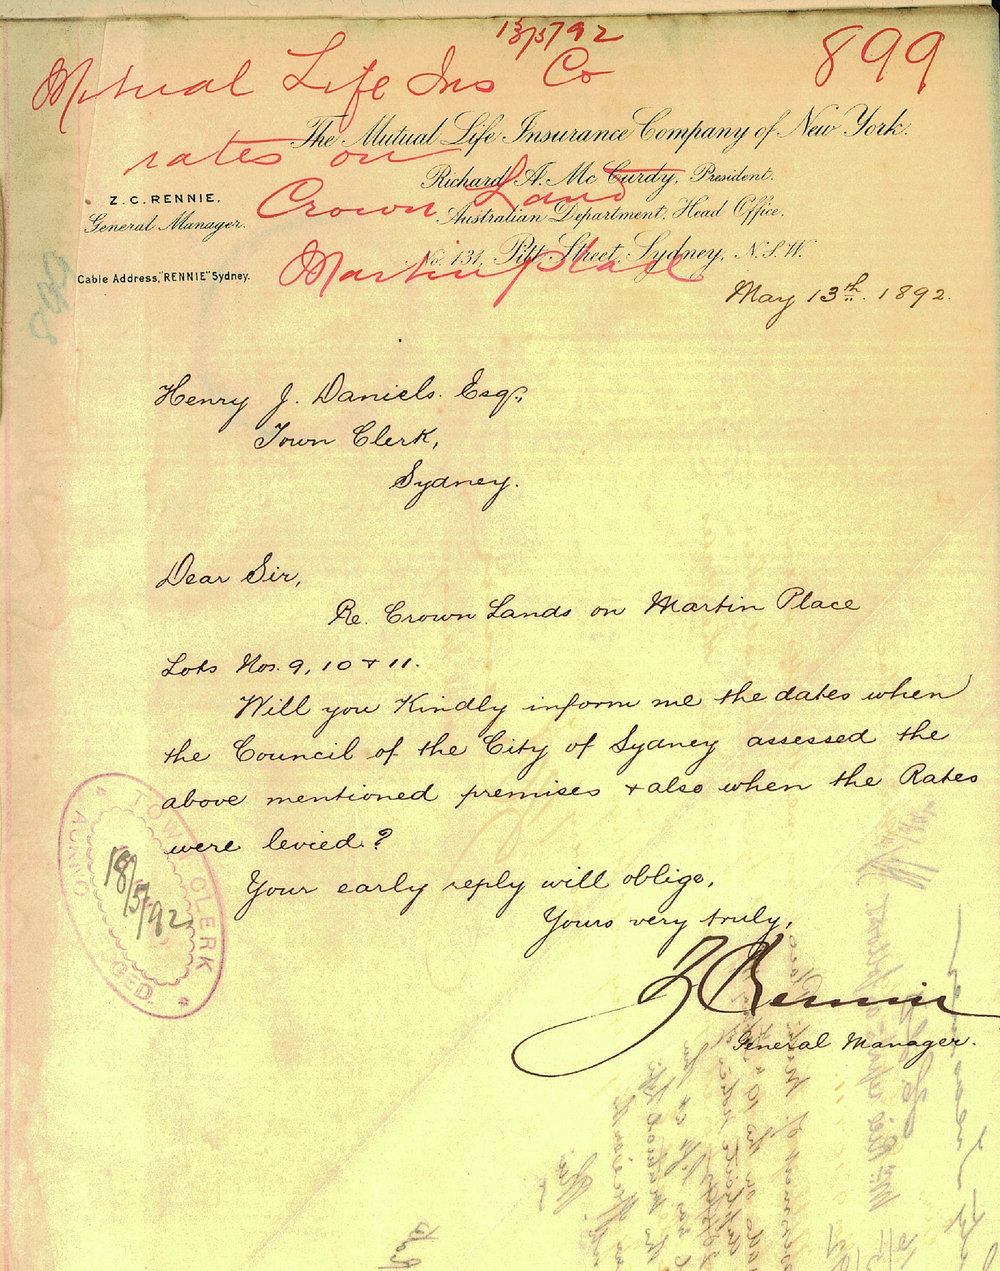 13/5/92
899
Mutual Life Ins Co
rates on
Crown Land
Martin Place
The Mutual Life Insurance Company of New York.
Richard A. Mc Curdy, President.
Australian Department, Head Office.
No. 131, Pitt Street, Sydney, N.S.W.
Z.C. RENNIE,
General Manager.
Cable Address, "RENNIE" Sydney.
May 13th. 1892.
Henry J. Daniels. Esq.,
Town Clerk,
Sydney.
Dear Sir,
Re. Crown Lands on Martin Place
Lots Nos. 9, 10 & 11.
Will you Kindly inform me the dates when
the Council of the City of Sydney assessed the
above mentioned premises & also when the Rates
were levied?
Your early reply will oblige,
Yours very truly,
Z C Rennie
General Manager.
TOWN CLERK
18/5/92